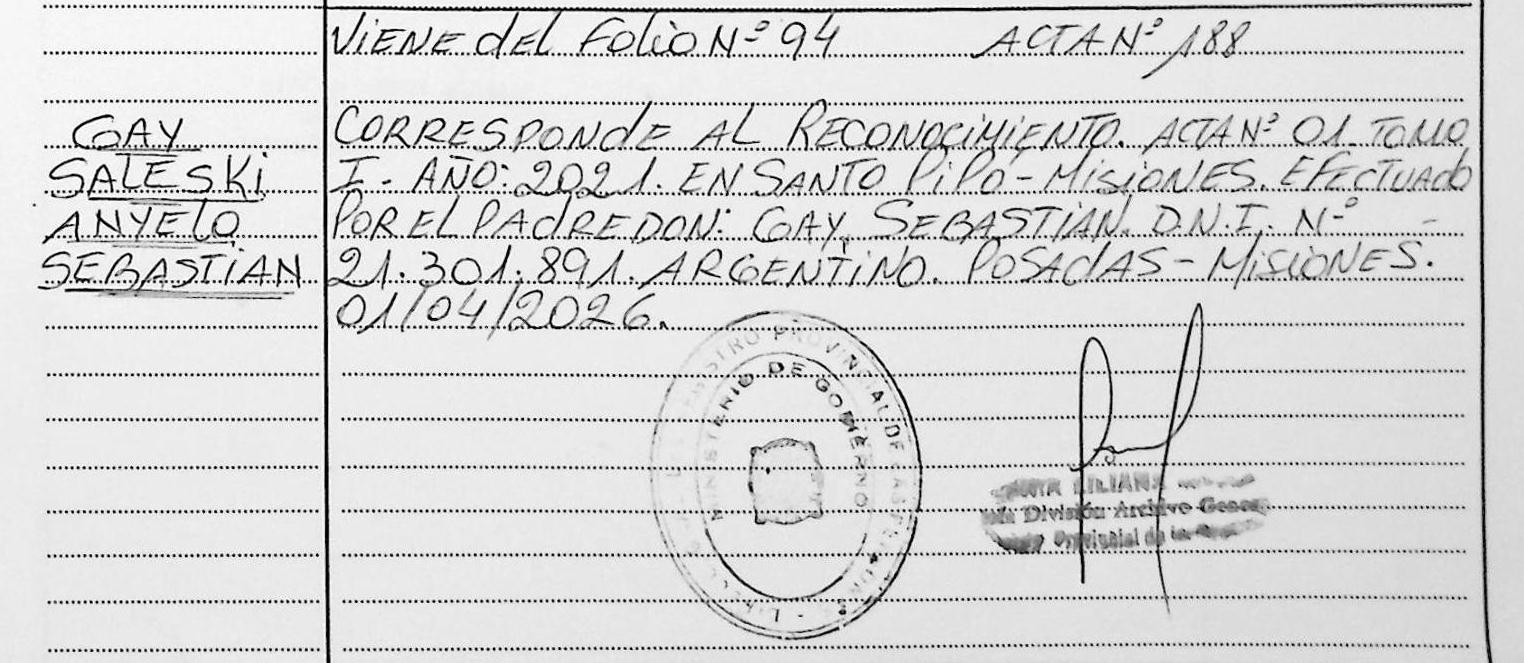 VIENE del Folio Nº 94 ACTA Nº 188
GAY
SALESKI
ANYELO
SEBASTIAN
CORRESPONDE AL RECONOCIMIENTO. ACTA Nº 01. TOMO
I - AÑO: 2021. EN SANTO PIPÓ - MISIONES. EFECTUADO
POR EL PADRE DON: GAY, SEBASTIAN. D.N.I. Nº -
21.301.891. ARGENTINO. POSADAS - MISIONES.
01/04/2026.
REGISTRO PROVINCIAL DE LAS PERSONAS
MINISTERIO DE GOBIERNO
LILIANA
División Archivo
Provincial de